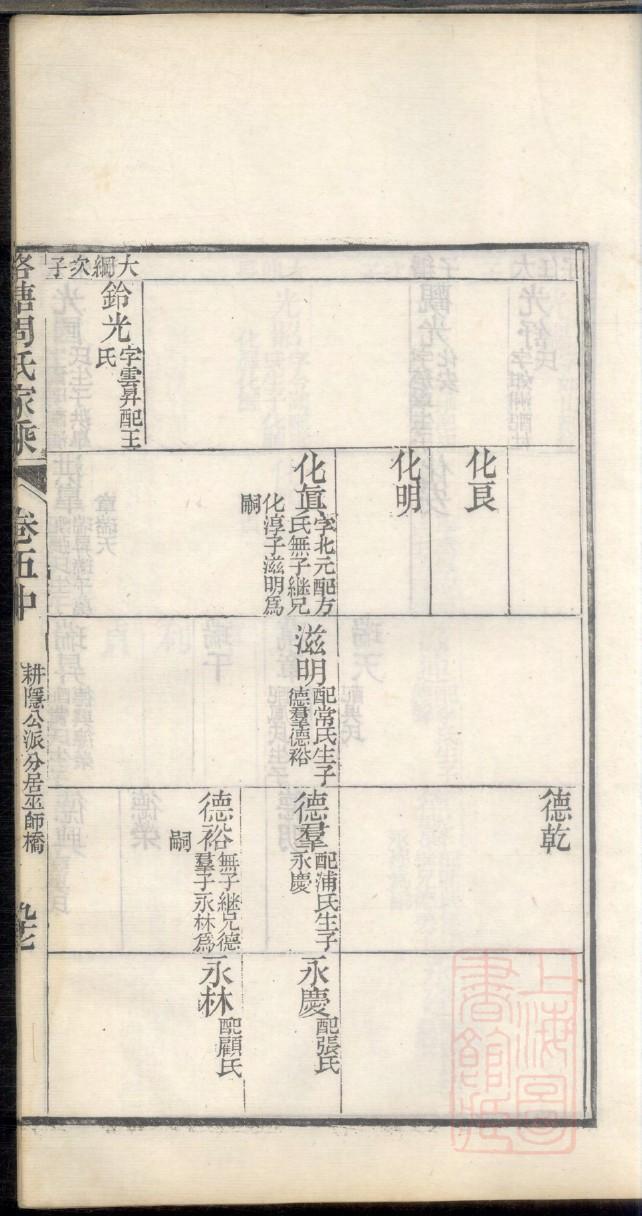 大綱次子
鈴光
字雲昇配王
氏
化良
化明
化眞
字北元配方
氏無子繼兄
化淳子滋明爲
嗣
滋明
配常氏生子
德羣德裕
德乾
德羣
配浦氏生子
永慶
德裕
無子繼兄德
羣子永林爲
嗣
永慶
配張氏
永林
配顧氏
塘周氏家乘
卷五中
耕隱公派分居巫師橋
九七
上海圖
書館藏